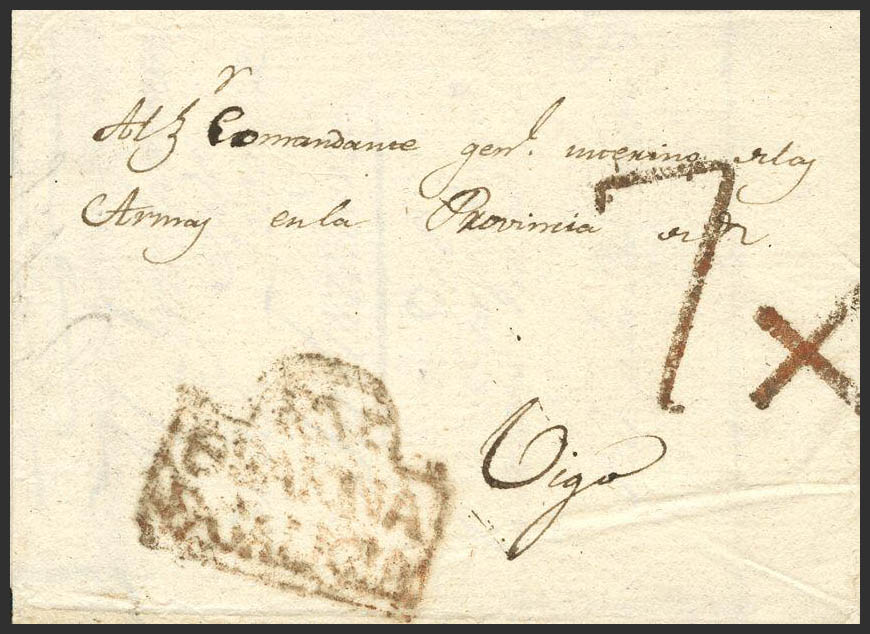 Al Sr Comandante genl. interino de las
Armas en la Provincia de
7
Vigo